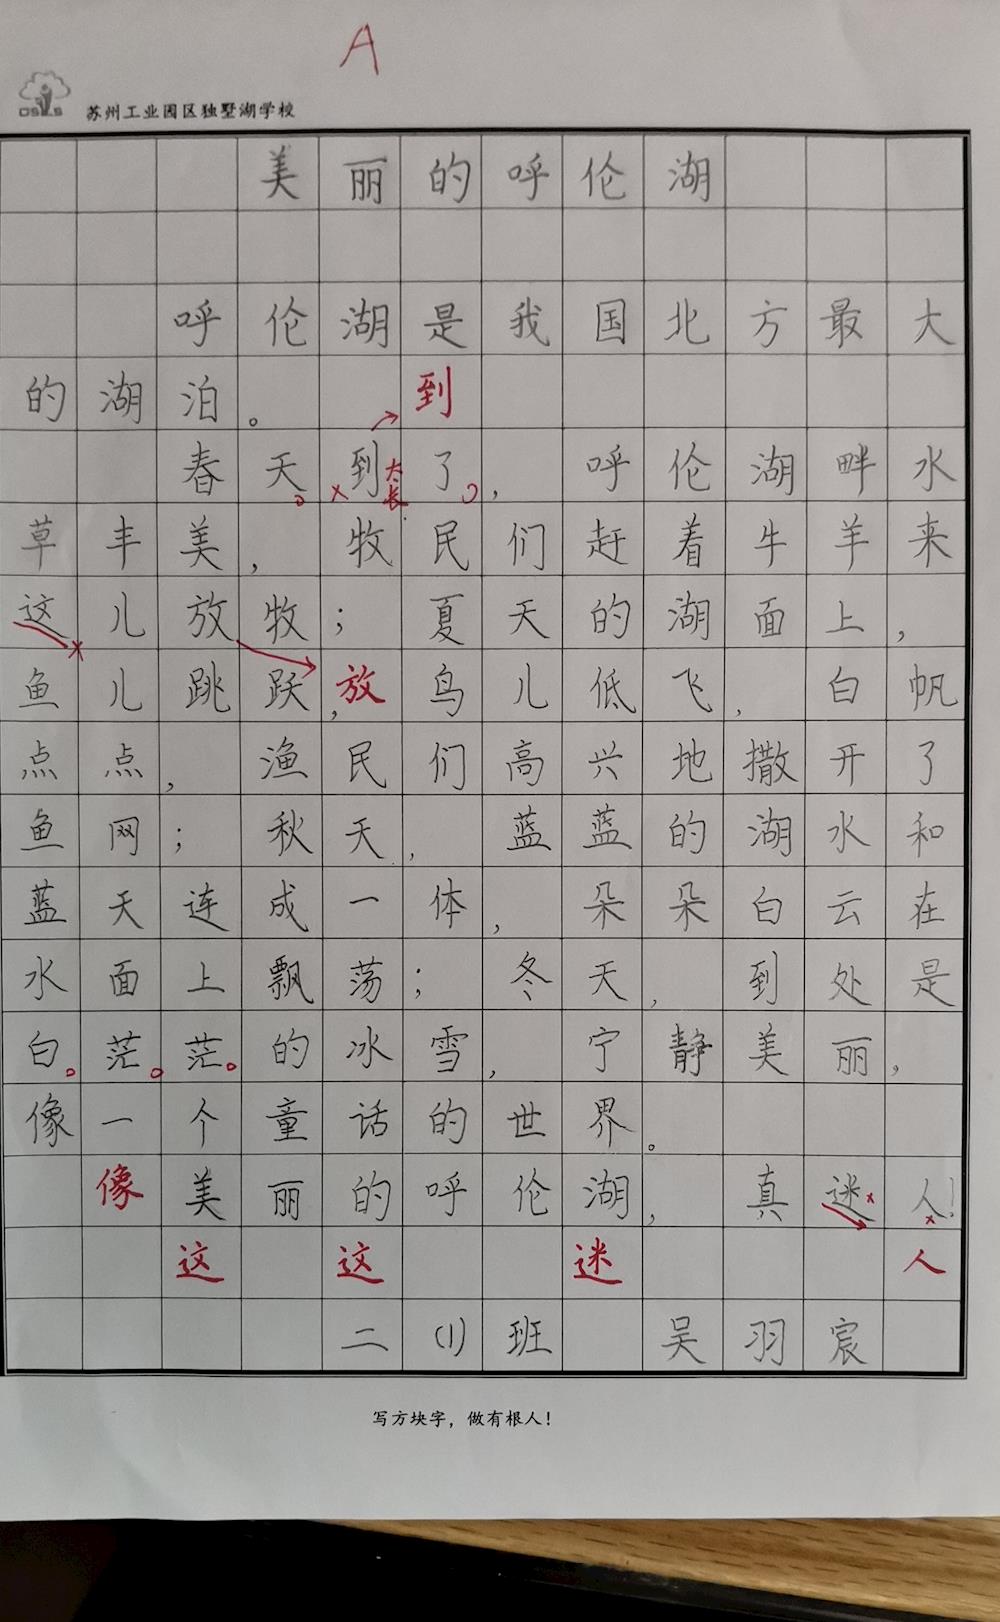 A
苏州工业园区独墅湖学校
美丽的呼伦湖
呼伦湖是我国北方最大
的湖泊。
到
春天到了，呼伦湖畔水
太长
草丰美，牧民们赶着牛羊来
这儿放牧；夏天的湖面上，
鱼儿跳跃，鸟儿低飞，白帆
放
点点，渔民们高兴地撒开了
鱼网；秋天，蓝蓝的湖水和
蓝天连成一体，朵朵白云在
水面上飘荡；冬天，到处是
白茫茫的冰雪，宁静美丽，
像一个童话的世界。
像
美丽的呼伦湖，真迷人！
这 这 迷 人
二（1）班 吴羽宸
写方块字，做有根人！